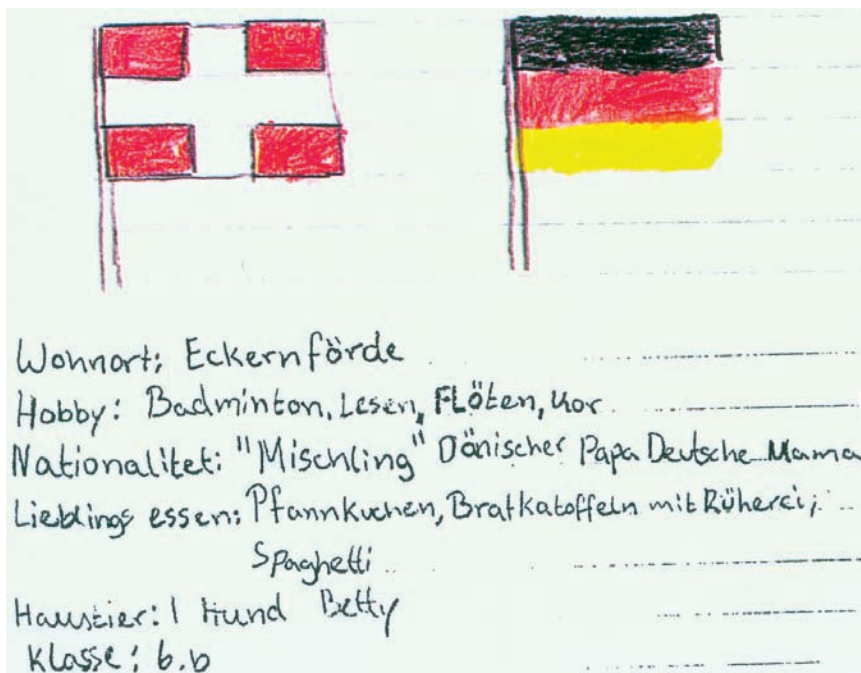 Wohnort: Eckernförde
Hobby: Badminton, Lesen, FLöten, Kor
Nationalitet: "Mischling" Dänischer Papa Deutsche Mama
Lieblings essen: Pfannkuchen, Bratkatoffeln mit Rüherei,
Spaghetti
Haustier: 1 Hund Betty
Klasse: 6.b